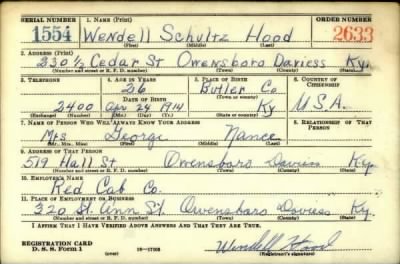 SERIAL NUMBER 1. NAME (Print) ORDER NUMBER
1554 Wendell Schultz Hood 2633
(First) (Middle) (Last)
2. ADDRESS (Print)
230½ Cedar St Owensboro Daviess Ky.
(Number and street or R. F. D. number) (Town) (County) (State)
3. TELEPHONE 4. AGE IN YEARS 5. PLACE OF BIRTH 6. COUNTRY OF CITIZENSHIP
26 Butler Co
DATE OF BIRTH (Town or county)
2400 Apr 24 1914 Ky U.S.A.
(Exchange) (Number) (Mo.) (Day) (Yr.) (State or country)
7. NAME OF PERSON WHO WILL ALWAYS KNOW YOUR ADDRESS 8. RELATIONSHIP OF THAT PERSON
Mrs George Nance
(Mr., Mrs., Miss) (First) (Middle) (Last)
9. ADDRESS OF THAT PERSON
519 Hall St. Owensboro Daviess Ky.
(Number and street or R. F. D. number) (Town) (County) (State)
10. EMPLOYER'S NAME
Red Cab Co.
11. PLACE OF EMPLOYMENT OR BUSINESS
320 St. Ann St. Owensboro Daviess Ky.
(Number and street or R. F. D. number) (Town) (County) (State)
I AFFIRM THAT I HAVE VERIFIED ABOVE ANSWERS AND THAT THEY ARE TRUE.
REGISTRATION CARD
D. S. S. Form 1 Wendell Hood
(Registrant's signature)